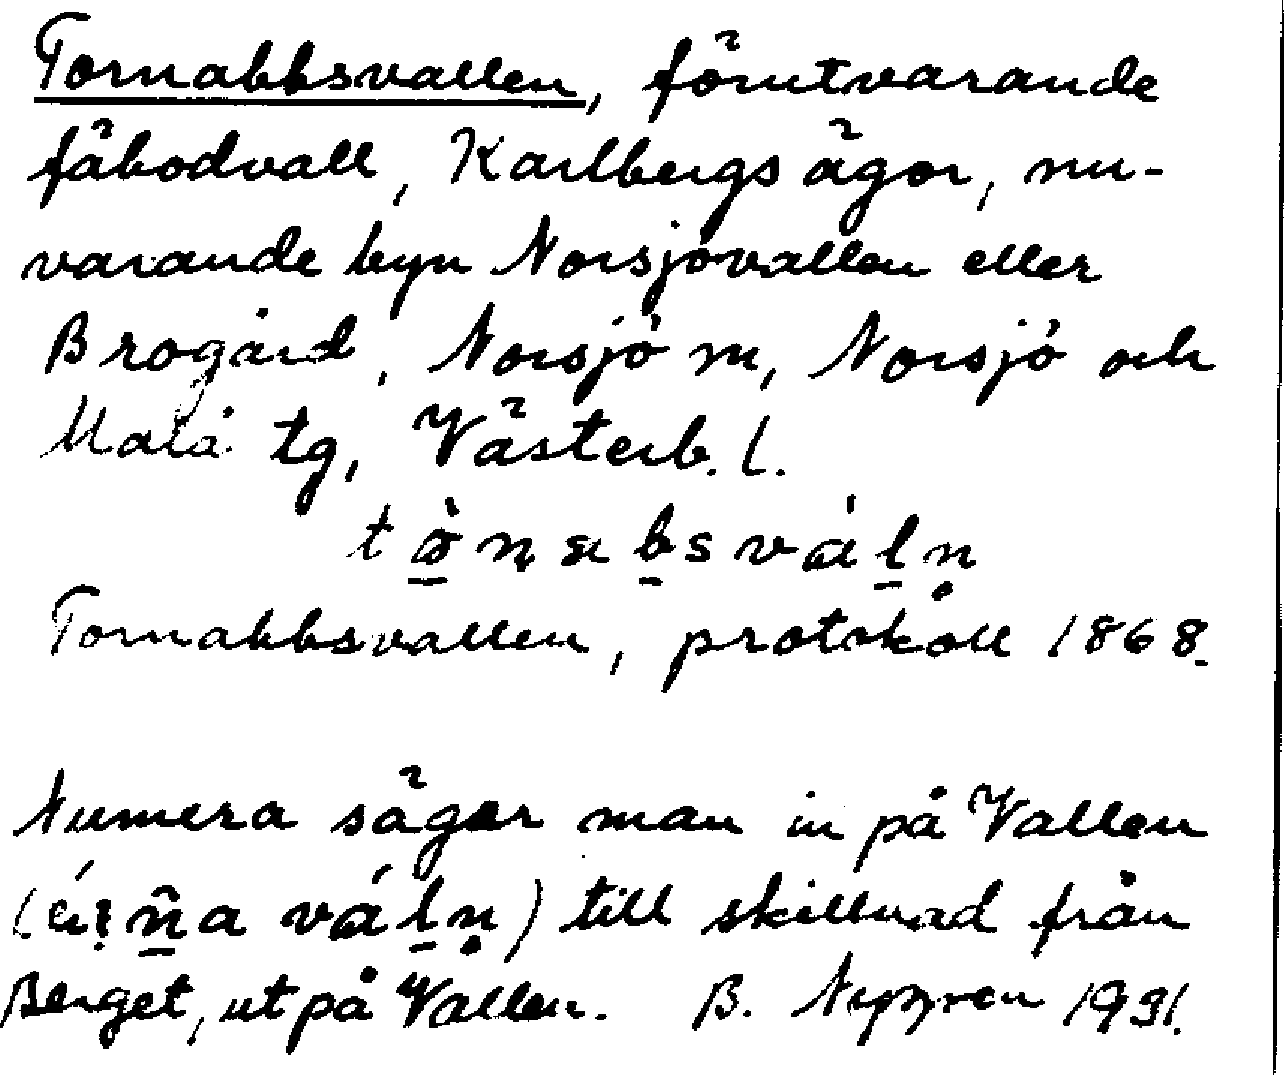 Tornabbsvallen, förutvarande
fäbodvall, Karlbergs ägor, nu-
varande byn Norsjövallen eller
Brogård, Norsjö sn, Norsjö och
Malå tg, Västerb. l.
Tornabbsvallen, protokoll 1868.
Numera säger man in på Vallen
till skillnad från
Berget, ut på Vallen. B. 1931.